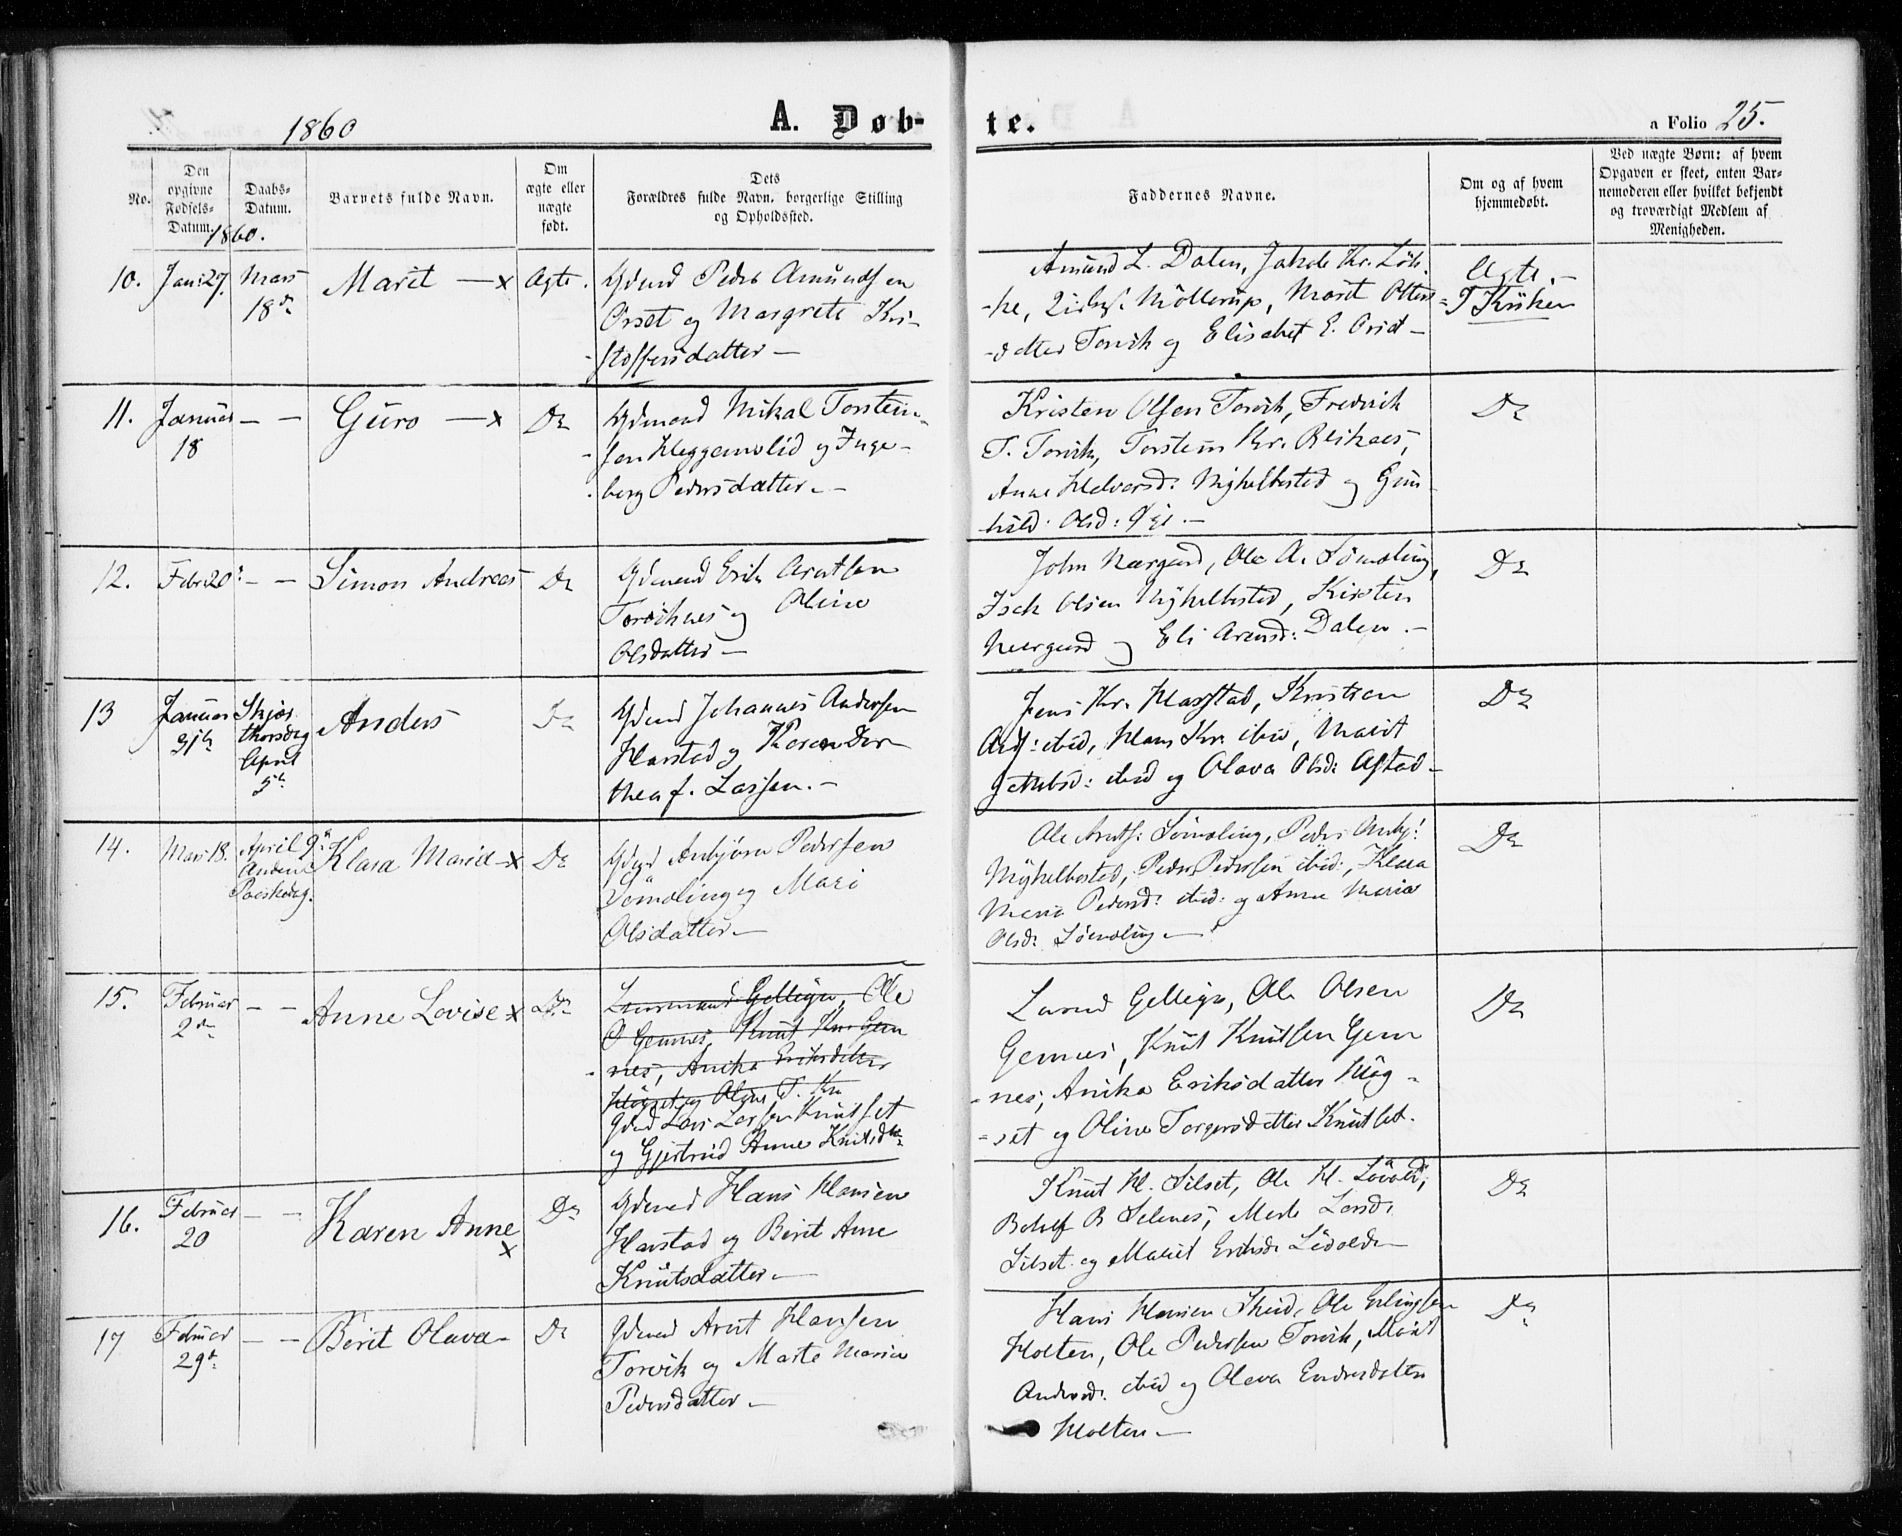 1860
A. Døb-
te.
a Folio 25.
No.
Den opgivne Fødsels-Datum.
Daabs-Datum.
Barnets fulde Navn.
Om ægte eller nægte født.
Dets Forældres fulde Navn, borgerlige Stilling og Opholdssted.
Faddernes Navne.
Om og af hvem hjemmedøbt.
Ved nægte Børn: af hvem Opgaven er skeet, enten Barnemoderen eller hvilket bekjendt og troværdigt Medlem af Menigheden.
1860.
10. Jan: 27. Mars 18de Marit — x Ægte.
Gdmd Peder Amundsen
Orset og Margrete Kri-
stoffersdatter —
Amund L. Dalen, Jakob Kr.
Møllerup, Marit Olsen
-datter Torvik og Elisabet E.
Ægte.-
I Kirken
11. Januar 18 — — Guro — x Do
Gdmand Mikal Torstein-
sen Heggemslid og Inge-
berg Pedersdatter. —
Kristen Olsen Torvik, Frederik
T. Torvik, Torstein Kr.
Anne Halvorsd: Myhelbostad og Gun
hild Olsd: Øie. —
Do
12. Febr 20 — — Simon Andreas Do
Gdmand Erik Arntsen
Torviknes og Oline
Olsdatter —
John Nergaard, Ole A. Sømoling,
Isak Olsen Myhelbostad, Kirsten
Nergaard og Eli Arensd: Dalen. —
Do
13 Januar 31te Skjær thorsdag April 5te Anders Do
Gdmd Johannes Andersen
Harstad og Karen Dor
thea f. Lassen. —
Jens Kr. Harstad, Kristian
ibid, Hans Kr. ibid, Marit
ibid og Olava Olsd:
Do
14. Mars 18. April 9de Anden Paaskedag. Klara Marie x Do
Gdmd Anbjørn Pedersen
Sømoling og Mari
Olsdatter —
Ole Arntf: Sømoling, Peder Anbj:
Myhelbostad, Peder Pedersen ibid:, Klara
Maria Pedersd: ibid: og Anne Maria
Olsd: Sømoling —
Do
15. Februar 2den — — Anne Lovise x Do
Lensmand Gellein, Ole
O Gemnes, Knut Kn. Gem
nes, Anika Eriksdatter
Høgset og Oline T. Kn
Gdmd Lars Larsen Knutset
og Gjertrud Anne Knutsdtr
Lensmd Gellein, Ole Olsen
Gemnes, Knut Knutsen Gem
-nes, Anika Eriksdatter Høg-
-set og Oline Torgersdatter Knutset.
Do
16. Februar 20 — — Karen Anne x Do
Gdmand Hans Hansen
Harstad og Berit Anne
Knutsdatter —
Knut H. Silset, Ole H.
B Selenes,
Silset og Marit Eriksd:
Do
17 Februar 29de — — Berit Olava — Do
Gdmand Arnt Hansen
Torvik og Marte Maria
Pedersdatter —
Hans Hansen Skeid, Ole Erlingsen
Holten, Ole Pedersen Torvik, Marit
Andersd: ibid og Olava Endresdatter
Holten —
Do